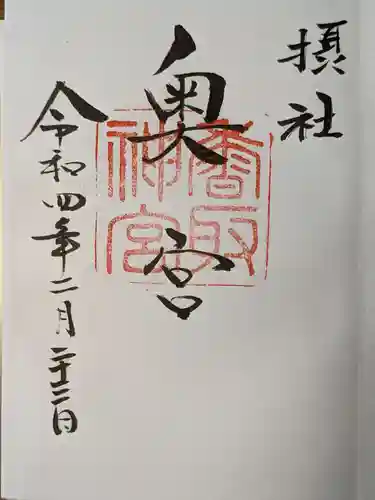 摂社
奥宮
香取神宮
令和四年二月二十三日